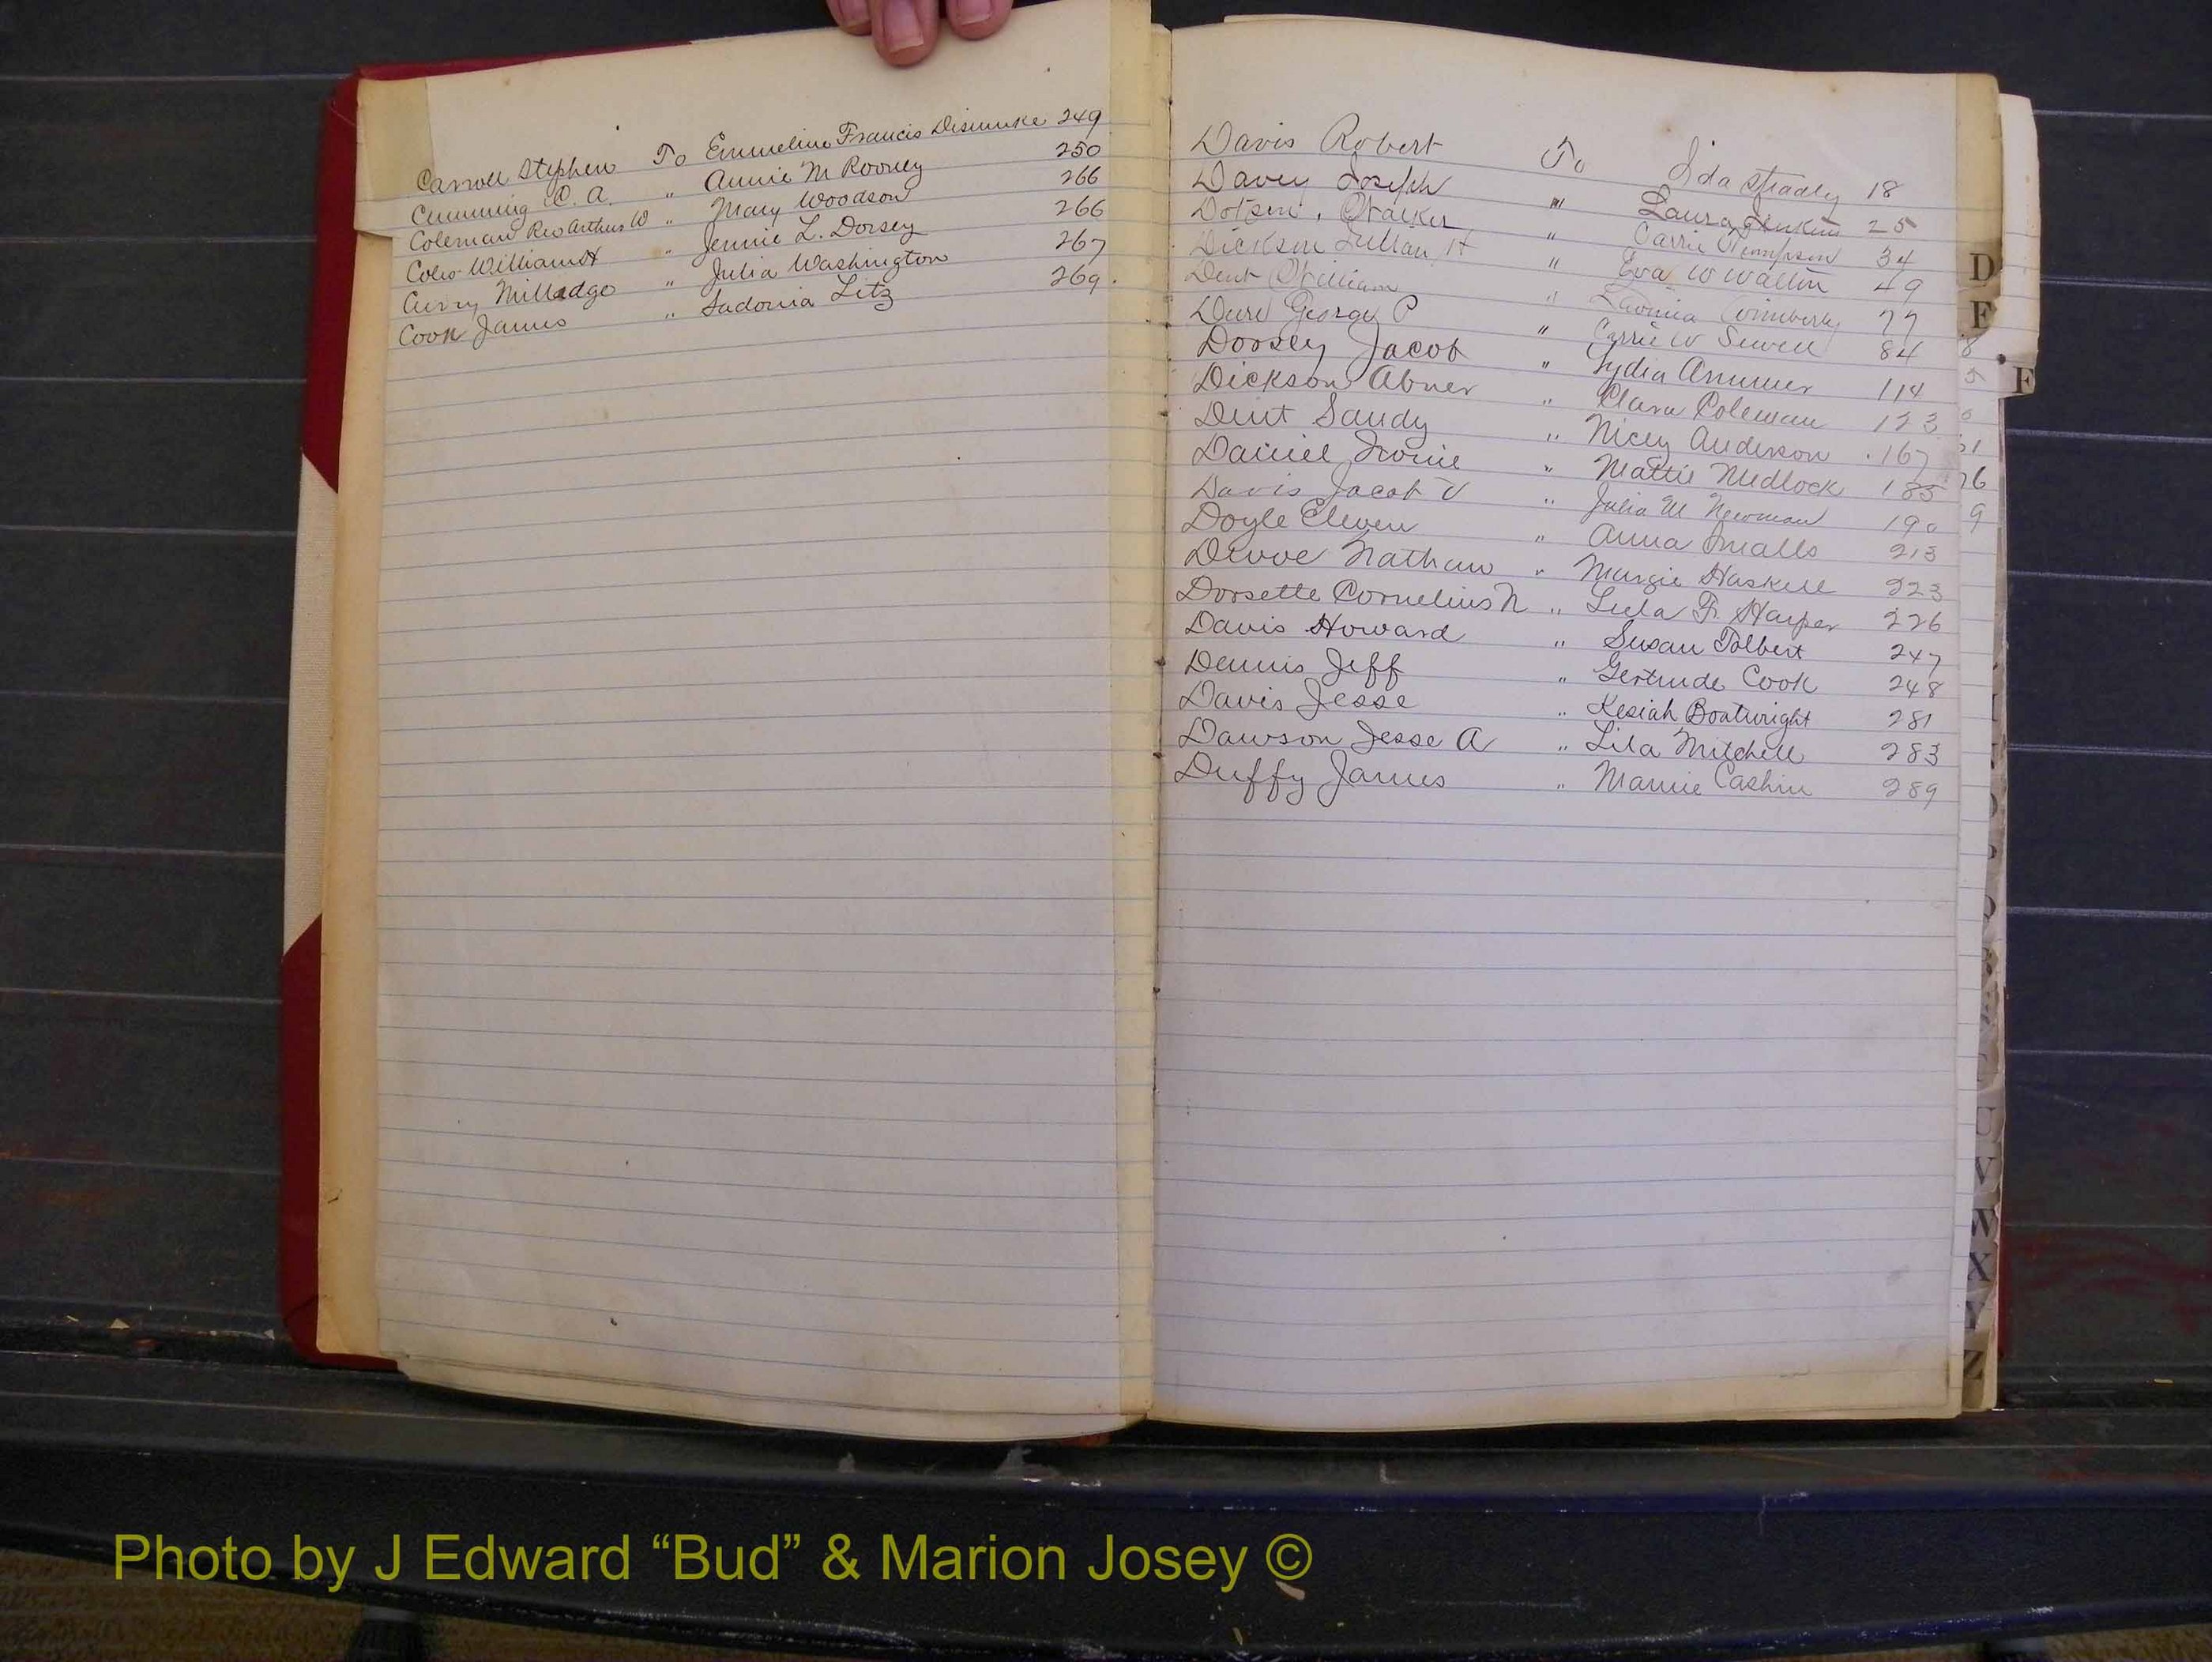 Carroll Stephen To Emmeline Francis Dismuke 249
Cumming C. A. " Annie M Rooney 250
Coleman Rev Arthur W " Mary Woodson 266
Coles William H " Jennie L. Dorsey 266
Curry Milledge " Julia Washington 267
Cook James " Sadonia Litz 269.
Davis Robert To Ida Stradly 18
Davey Joseph " Laura Jenkins 25
Dotson, Walker " Carrie Thompson 34
Dickson Lullan H " Eva W Walton 49
Dent William " Lavinia Wimberly 77
Dure George P " Carrie W Sewell 84
Dorsey Jacob " Lydia Ammer 114
Dickson Abner " Clara Coleman 123
Dent Sandy " Nicey Anderson 167
Daniel " Mattie Medlock 185
Davis Jacob V " Julia M Newman 190
Doyle Eleven " Anna Smalls 213
Devoe Nathan " Margie Haskell 223
Dorsette Cornelius N " Lula F. Harper 226
Davis Howard " Susan Tolbert 247
Dennis Jeff " Gertrude Cook 248
Davis Jesse " Kesiah Boatwright 281
Dawson Jesse A " Lila Mitchell 283
Duffy James " Mamie Cashin 289
D
E
F
8
5
0
51
76
9
U
V
W
X
Y
Z
Photo by J Edward “Bud” & Marion Josey ©